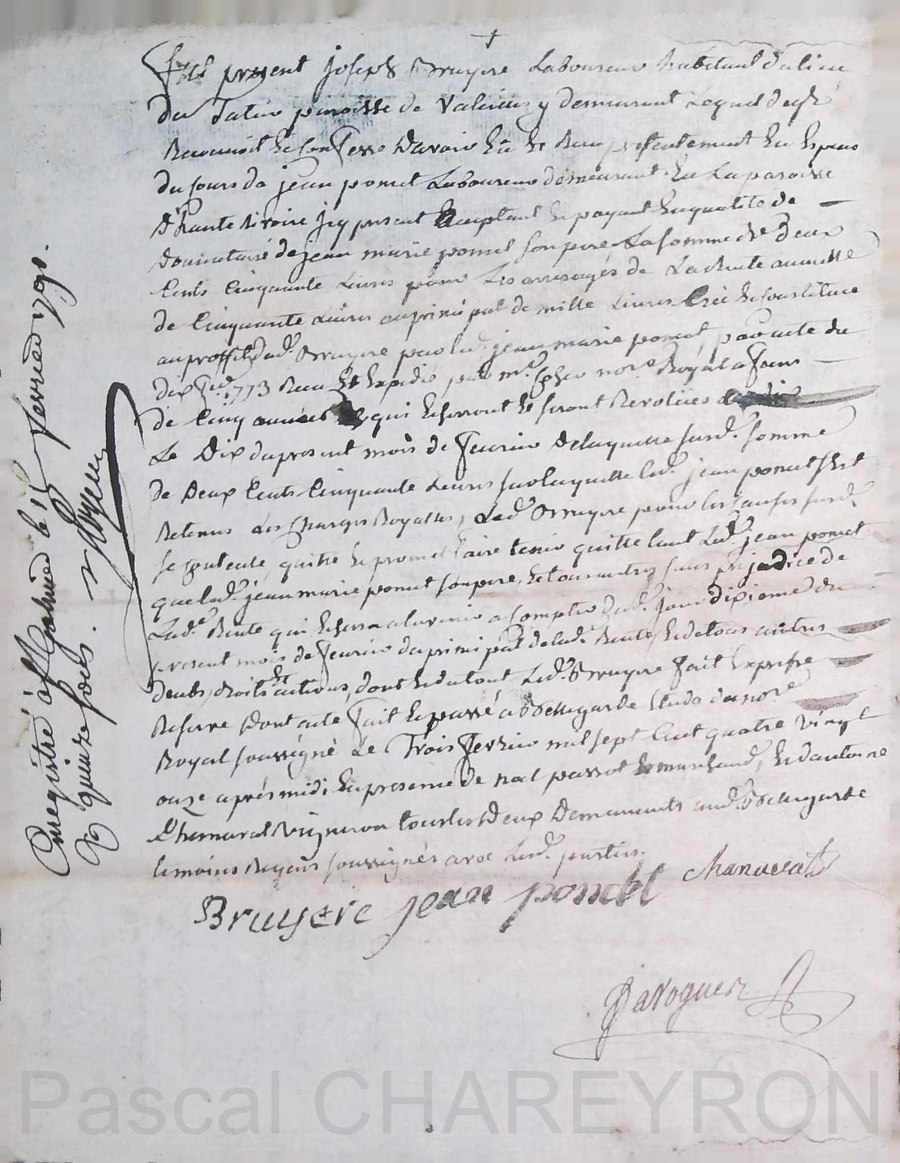 +
fut present joseph Bruyere Laboureur habitant du lieu
du paroisse de y demeurant Lequel de gré
Reconnoit Et Confesse D'avoir Eu Et Reçu presentement En Espece
du Jours de jean pomet Laboureur demeurant En La paroisse
d'haute Rivoire Icy present acceptant Et payant En qualité de
donnataire de jean marie pomet son pere La somme de deux
Cents Cinquante Livres pour Les arrerages de La Rente annuelle
de Cinquante Livres au principal de mille Livres Créé Et Constituée
au proffit dud. Bruyere par led. jean marie pomet, par acte du
dix 1773 Reçu Et Expedié par me. nore. Royal
de Cinq années qui Echerront Et seront Revolües
Le Dix du present mois de fevrier De laquelle surd. somme
de Deux Cents Cinquante Livres sur laquelle led. jean pomet s'est
Retenus Les Charges Royalles, Led. Bruyere pour Les Causes surd.
se Contente, quitte Et promet faire tenir quitte tant Led. jean pomet
que led. jean marie pomet son pere, Et tous autres sans prejudice de
Lad. Rente qui Echerra a l'avenir a Compter dud. jour dixieme du
present mois de fevrier du principal de lad. Rente, Et de tous autres
deubs, droits Et actions, dont Et du tout Led. Bruyere fait Expresse
Reserve Dont acte fait Et passé a Bellegarde Etude du nore.
Royal soussigné Le Trois fevrier mil sept Cent quatre vingt
onze après midi En presence de marchand, Et d'antoine
vigneron tous Les Deux Demeurants aud. Bellegarde
temoins Requis soussignés avec Lesd. parties.
Bruyere jean pomet Chanavat
Enregistré à le 15 fevrier 1791.
Rç quinze sous.
Pascal CHAREYRON